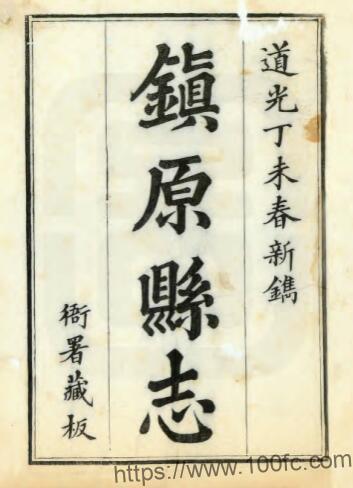 道光丁未春新鐫
鎮原縣志
衙署藏板
https://www.100fc.com